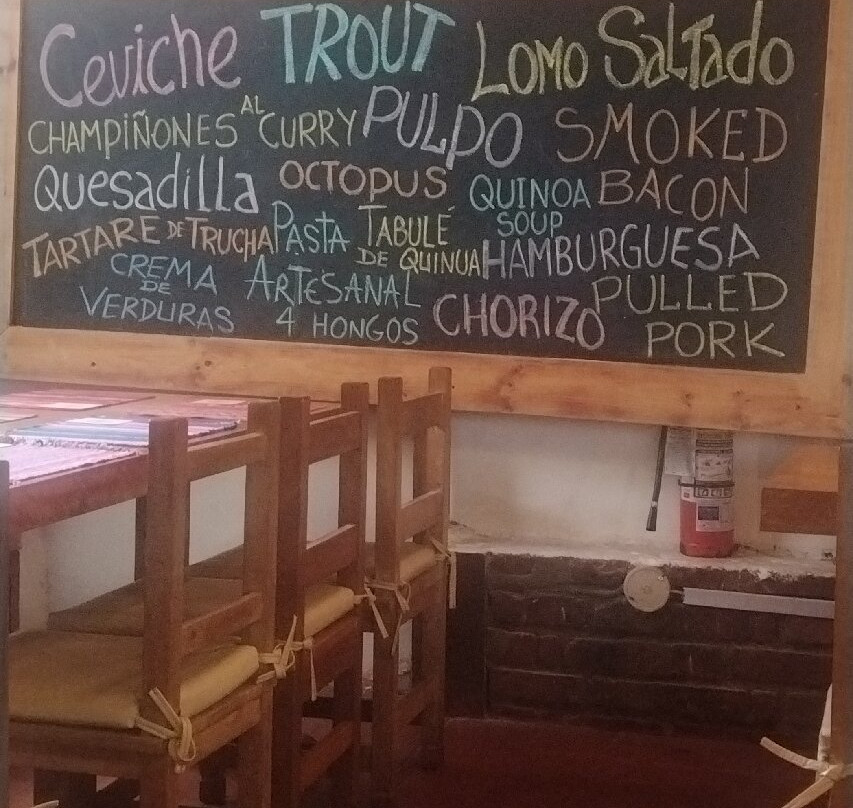 Ceviche TROUT LOMO SALTADO
CHAMPIÑONES AL CURRY PULPO SMOKED
Quesadilla OCTOPUS QUINOA BACON
TARTARE DE TRUCHA PASTA TABULÉ SOUP
DE QUINUA HAMBURGUESA
CREMA ARTESANAL PULLED
DE
VERDURAS 4 HONGOS CHORIZO PORK